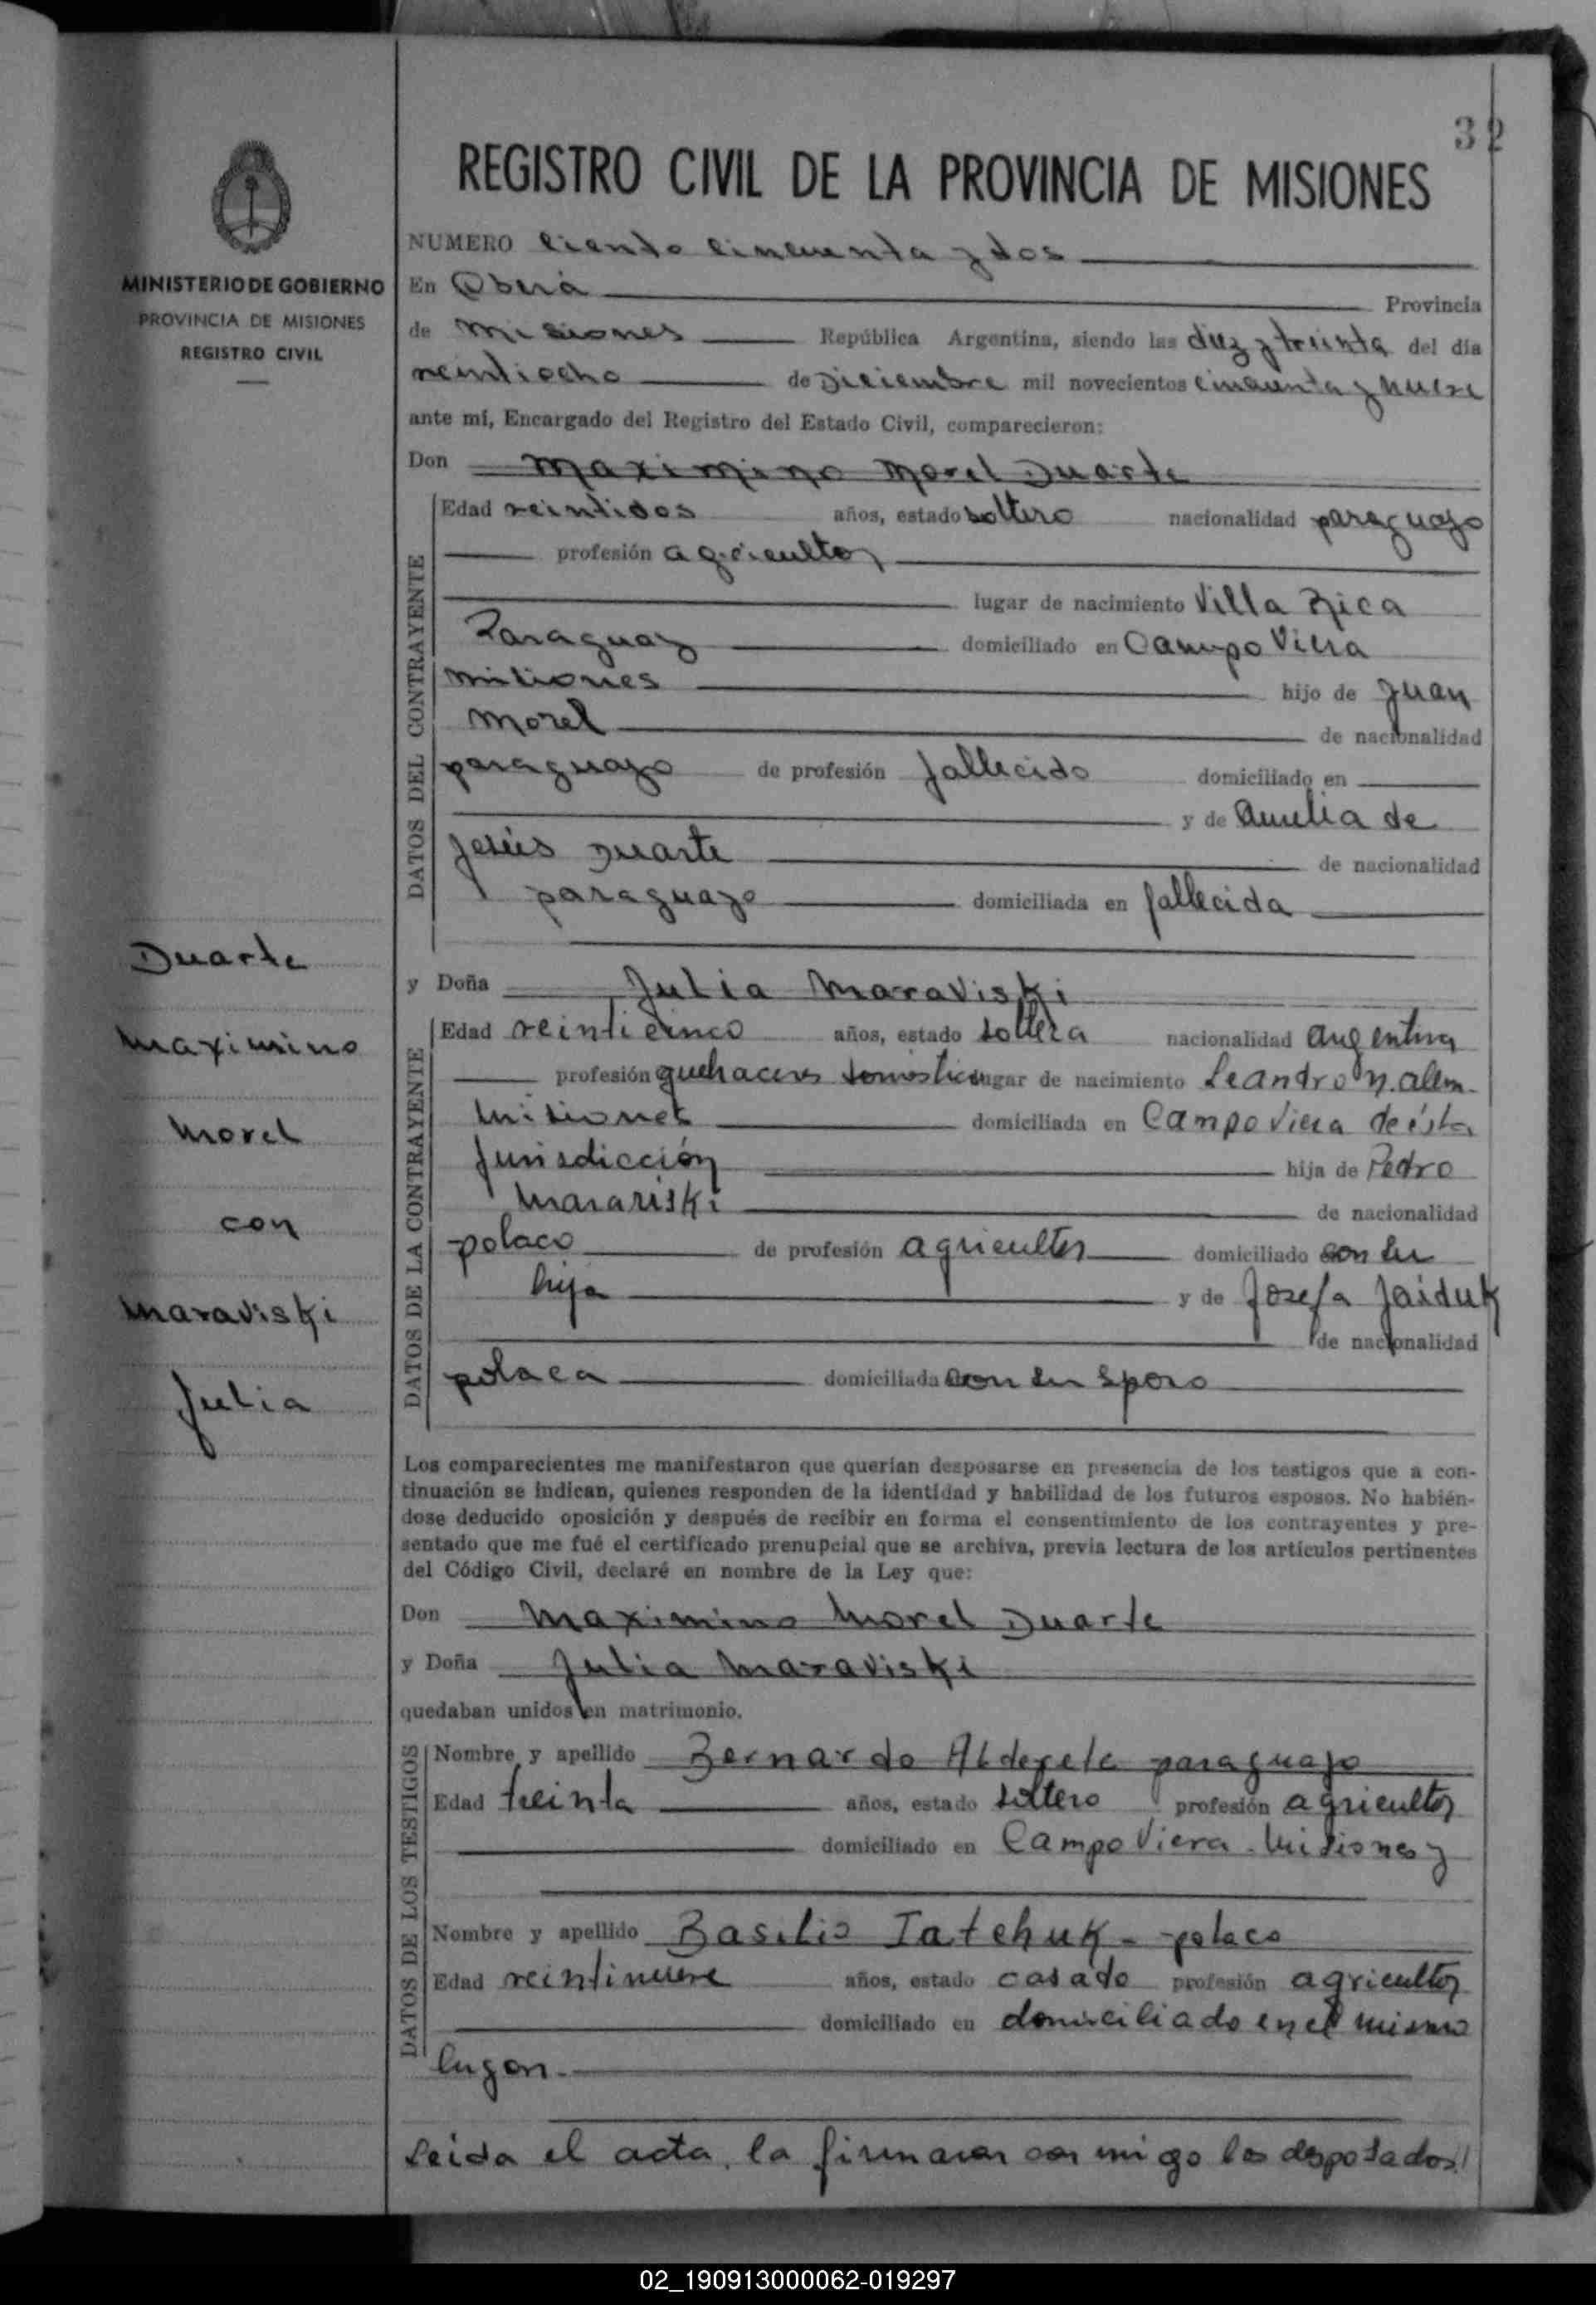 32
REGISTRO CIVIL DE LA PROVINCIA DE MISIONES
MINISTERIO DE GOBIERNO
PROVINCIA DE MISIONES
REGISTRO CIVIL
NUMERO ciento cincuenta y dos
En Oberá Provincia
de Misiones República Argentina, siendo las diez y treinta del día
veintiocho de Diciembre mil novecientos cincuenta y nueve
ante mí, Encargado del Registro del Estado Civil, comparecieron:
Don Maximino Morel Duarte
DATOS DEL CONTRAYENTE
Edad veintidos años, estado soltero nacionalidad paraguayo
profesión agricultor
lugar de nacimiento Villa Rica
Paraguay domiciliado en Campo Viera
Misiones hijo de Juan
Morel de nacionalidad
paraguayo de profesión fallecido domiciliado en
y de Amelia de
Jesús Duarte de nacionalidad
paraguayo domiciliada en fallecida
y Doña Julia Maraviski
DATOS DE LA CONTRAYENTE
Edad veinticinco años, estado soltera nacionalidad argentina
profesión quehaceres domésticos lugar de nacimiento Leandro N. Alem
Misiones domiciliada en Campo Viera de ésta
Jurisdicción hija de Pedro
Maraviski de nacionalidad
polaco de profesión agricultor domiciliado con su
hija y de Josefa Jaiduk
de nacionalidad
polaca domiciliada con su esposo
Duarte
Maximino
Morel
con
Maraviski
Julia
Los comparecientes me manifestaron que querían desposarse en presencia de los testigos que a con-
tinuación se indican, quienes responden de la identidad y habilidad de los futuros esposos. No habién-
dose deducido oposición y después de recibir en forma el consentimiento de los contrayentes y pre-
sentado que me fué el certificado prenupcial que se archiva, previa lectura de los artículos pertinentes
del Código Civil, declaré en nombre de la Ley que:
Don Maximino Morel Duarte
y Doña Julia Maraviski
quedaban unidos en matrimonio.
DATOS DE LOS TESTIGOS
Nombre y apellido Bernardo Alderete paraguayo
Edad treinta años, estado soltero profesión agricultor
domiciliado en Campo Viera - Misiones y
Nombre y apellido Basilio Tatchuk - polaco
Edad veintinueve años, estado casado profesión agricultor
domiciliado en domiciliado en el mismo
lugar.
Leida el acta, la firmaron conmigo los desposados
02_190913000062-019297